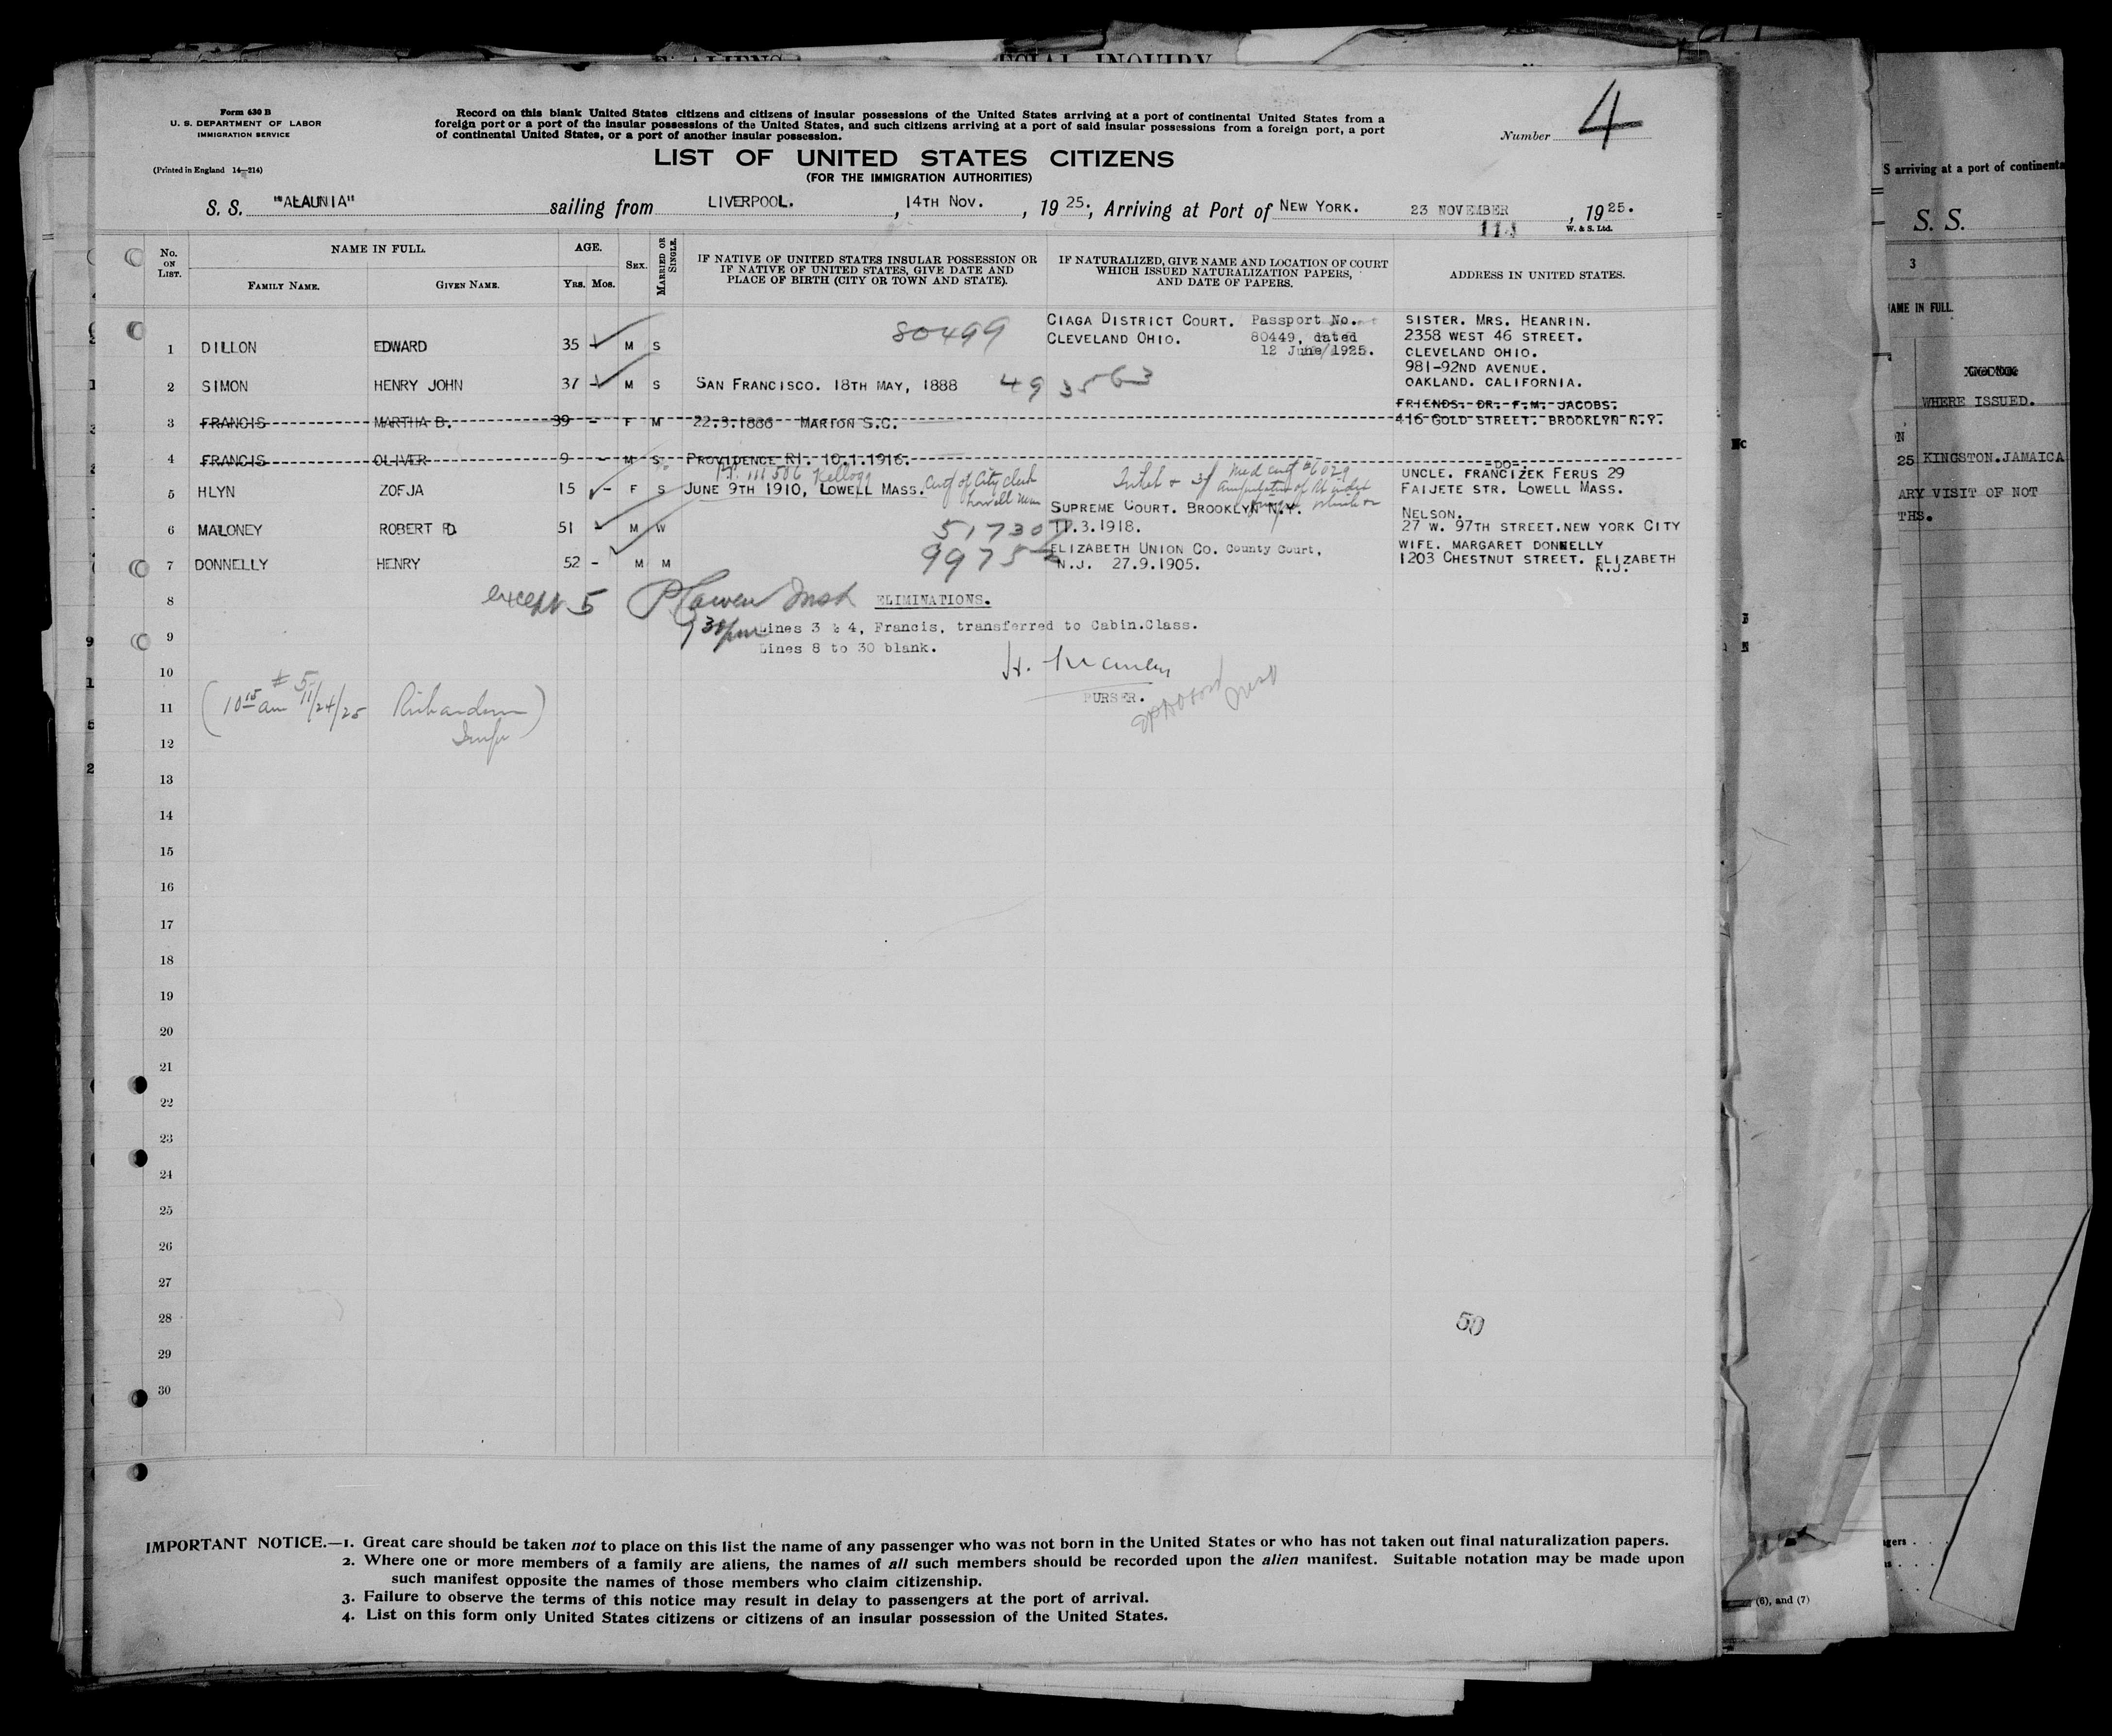 E ALIENS
ECIAL INQUIRY
Form 630 B
U. S. DEPARTMENT OF LABOR
IMMIGRATION SERVICE
(Printed in England 14—214)
Record on this blank United States citizens and citizens of insular possessions of the United States arriving at a port of continental United States from a
foreign port or a port of the insular possessions of the United States, and such citizens arriving at a port of said insular possessions from a foreign port, a port
of continental United States, or a port of another insular possession.
Number 4
LIST OF UNITED STATES CITIZENS
(FOR THE IMMIGRATION AUTHORITIES)
S. S. "ALAUNIA" sailing from LIVERPOOL. , 14TH NOV. , 19 25. , Arriving at Port of NEW YORK. 23 NOVEMBER , 19 25.
W. & S. Ltd.
No. ON LIST.
NAME IN FULL.
FAMILY NAME.
GIVEN NAME.
AGE.
YRS. MOS.
SEX.
MARRIED OR SINGLE.
IF NATIVE OF UNITED STATES INSULAR POSSESSION OR
IF NATIVE OF UNITED STATES, GIVE DATE AND
PLACE OF BIRTH (CITY OR TOWN AND STATE).
IF NATURALIZED, GIVE NAME AND LOCATION OF COURT
WHICH ISSUED NATURALIZATION PAPERS,
AND DATE OF PAPERS.
ADDRESS IN UNITED STATES.
1 DILLON EDWARD 35 - M S 80499
CIAGA DISTRICT COURT. Passport No.
CLEVELAND OHIO. 80449, dated
12 June/1925.
SISTER. MRS. HEANRIN.
2358 WEST 46 STREET.
CLEVELAND OHIO.
2 SIMON HENRY JOHN 37 - M S SAN FRANCISCO. 18TH MAY, 1888 493563
981-92ND AVENUE.
OAKLAND. CALIFORNIA.
3 FRANCIS MARTHA B. 39 - F M 22.3.1886 MARION S.C.
FRIENDS. DR. F.M. JACOBS.
416 GOLD STREET. BROOKLYN N.Y.
4 FRANCIS OLIVER 9 - M S. PROVIDENCE RI. 10.1.1916.
-DO-.
P.P. 111506 Kellogg
5 HLYN ZOFJA 15 - F S JUNE 9TH 1910, LOWELL MASS.
Cert of City clerk
Lowell Mass
Med cert #6029
UNCLE. FRANCIZEK FERUS 29
FAIJETE STR. LOWELL MASS.
6 MALONEY ROBERT D. 51 - M W 517307
SUPREME COURT. BROOKLYN N.Y.
11.3.1918.
NELSON.
27 W. 97TH STREET. NEW YORK CITY
7 DONNELLY HENRY 52 - M M 99752
ELIZABETH UNION CO. County Court,
N.J. 27.9.1905.
WIFE. MARGARET DONNELLY
1203 CHESTNUT STREET. ELIZABETH
N.J.
8
except 5
ELIMINATIONS.
9
730 pm
Lines 3 & 4, Francis, transferred to Cabin.Class.
Lines 8 to 30 blank.
10
# 5
11
(10 15 am 11/24/25 Richardson
Insp)
PURSER.
12
13
14
15
16
17
18
19
20
21
22
23
24
25
26
27
28
50
29
30
IMPORTANT NOTICE.—1. Great care should be taken not to place on this list the name of any passenger who was not born in the United States or who has not taken out final naturalization papers.
2. Where one or more members of a family are aliens, the names of all such members should be recorded upon the alien manifest. Suitable notation may be made upon
such manifest opposite the names of those members who claim citizenship.
3. Failure to observe the terms of this notice may result in delay to passengers at the port of arrival.
4. List on this form only United States citizens or citizens of an insular possession of the United States.
S arriving at a port of continenta
S. S.
3
NAME IN FULL.
WHERE ISSUED.
25 KINGSTON.JAMAICA
ARY VISIT OF NOT
THS.
(6), and (7)